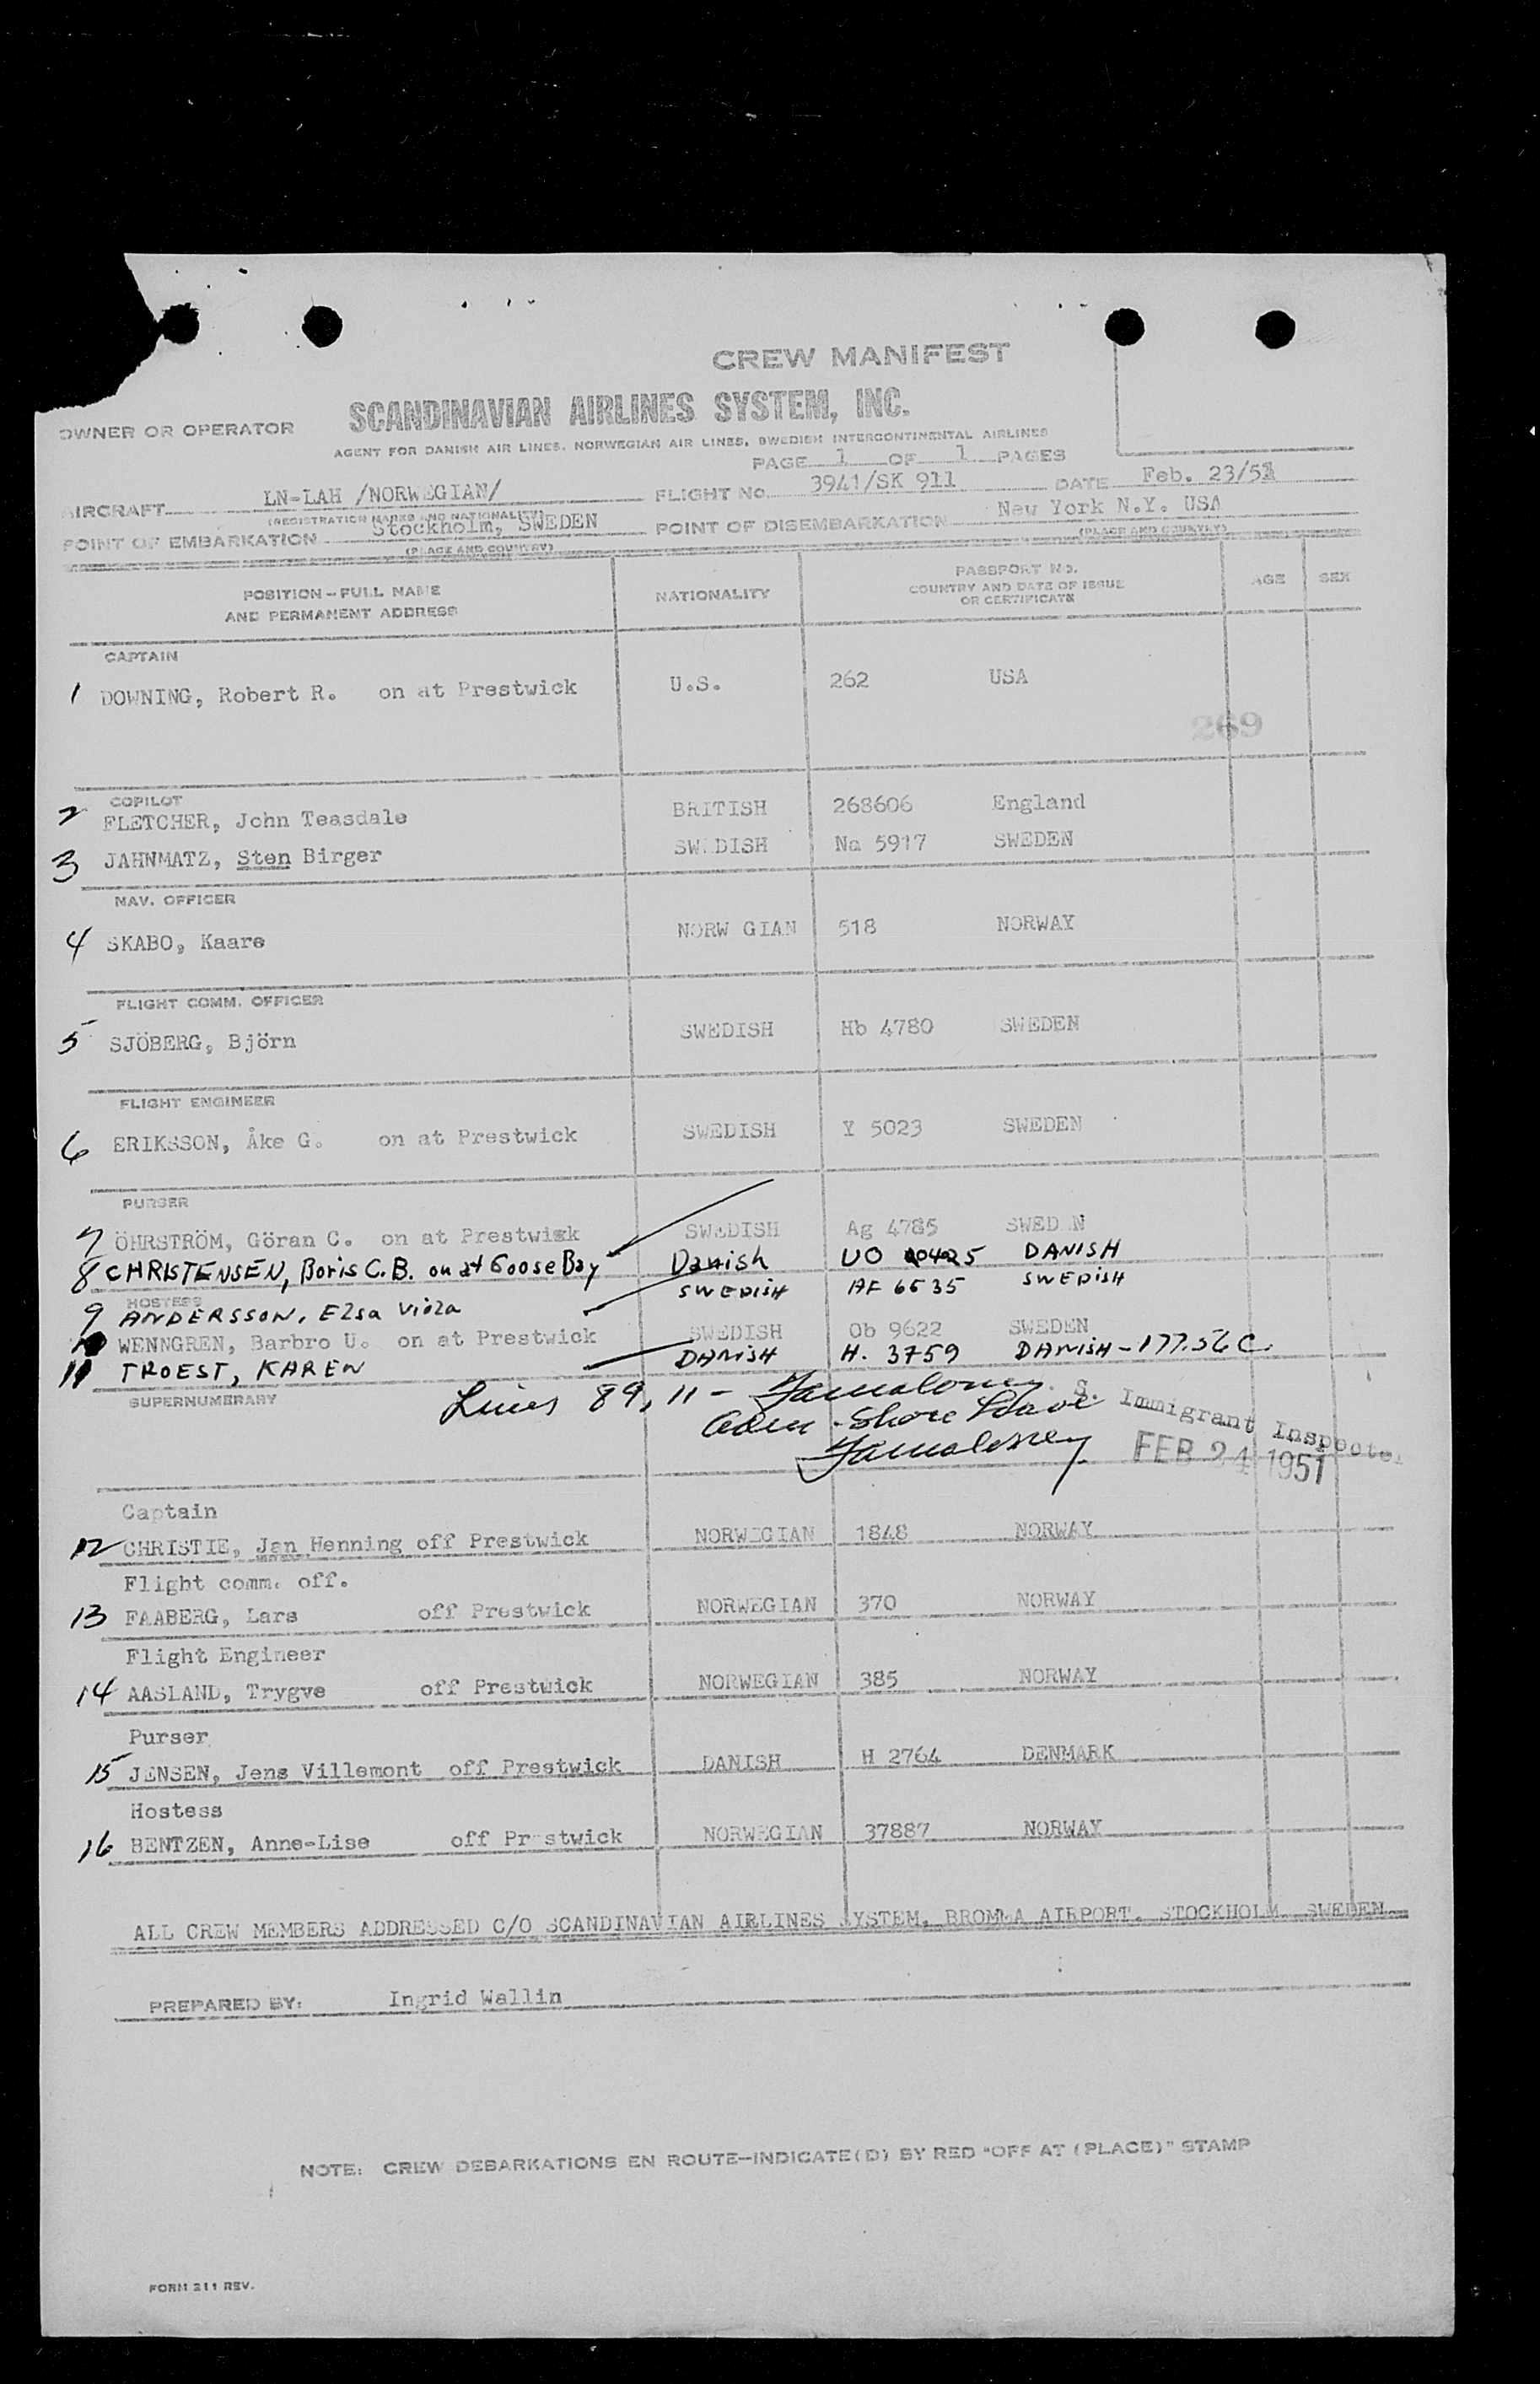 CREW MANIFEST
OWNER OR OPERATOR SCANDINAVIAN AIRLINES SYSTEM, INC.
AGENT FOR DANISH AIR LINES, NORWEGIAN AIR LINES, SWEDISH INTERCONTINENTAL AIRLINES
PAGE 1 OF 1 PAGES
AIRCRAFT LN-LAH /NORWEGIAN/ FLIGHT NO. 3941/SK 911 DATE Feb. 23/51
(REGISTRATION MARKS AND NATIONALITY)
POINT OF EMBARKATION Stockholm, SWEDEN POINT OF DISEMBARKATION New York N.Y. USA
(PLACE AND COUNTRY) (PLACE AND COUNTRY)
POSITION - FULL NAME AND PERMANENT ADDRESS NATIONALITY PASSPORT NO. COUNTRY AND DATE OF ISSUE OR CERTIFICATE AGE SEX
CAPTAIN
1 DOWNING, Robert R. on at Prestwick U.S. 262 USA
269
COPILOT
2 FLETCHER, John Teasdale BRITISH 268606 England
3 JAHNMATZ, Sten Birger SW DISH Na 5917 SWEDEN
NAV. OFFICER
4 SKABO, Kaare NORW GIAN 518 NORWAY
FLIGHT COMM. OFFICER
5 SJÖBERG, Björn SWEDISH Hb 4780 SWEDEN
FLIGHT ENGINEER
6 ERIKSSON, Åke G. on at Prestwick SWEDISH Y 5023 SWEDEN
PURSER
7 ÖHRSTRÖM, Göran C. on at Prestwick SWEDISH Ag 4785 SWED N
8 CHRISTENSEN, Boris C.B. on at Goose Bay Danish UO DANISH
HOSTESS
9 ANDERSSON, Elsa Viola SWEDISH AF 6535 SWEDISH
10 WENNGREN, Barbro U. on at Prestwick SWEDISH Ob 9622 SWEDEN
11 TROEST, KAREN DANISH H. 3759 DANISH - 177.56 C.
SUPERNUMERARY
Lines 89, 11 -
Shore Leave
S. Immigrant Inspector
FEB 24 1951
Captain
12 CHRISTIE, Jan Henning off Prestwick NORWEGIAN 1848 NORWAY
Flight comm. off.
13 FAABERG, Lars off Prestwick NORWEGIAN 370 NORWAY
Flight Engineer
14 AASLAND, Trygve off Prestwick NORWEGIAN 385 NORWAY
Purser
15 JENSEN, Jens Villemont off Prestwick DANISH H 2764 DENMARK
Hostess
16 BENTZEN, Anne-Lise off Pr stwick NORWEGIAN 37887 NORWAY
ALL CREW MEMBERS ADDRESSED C/O SCANDINAVIAN AIRLINES SYSTEM. BROMMA AIRPORT. STOCKHOLM. SWEDEN
PREPARED BY: Ingrid Wallin
NOTE: CREW DEBARKATIONS EN ROUTE-INDICATE(D) BY RED "OFF AT (PLACE)" STAMP
FORM 211 REV.